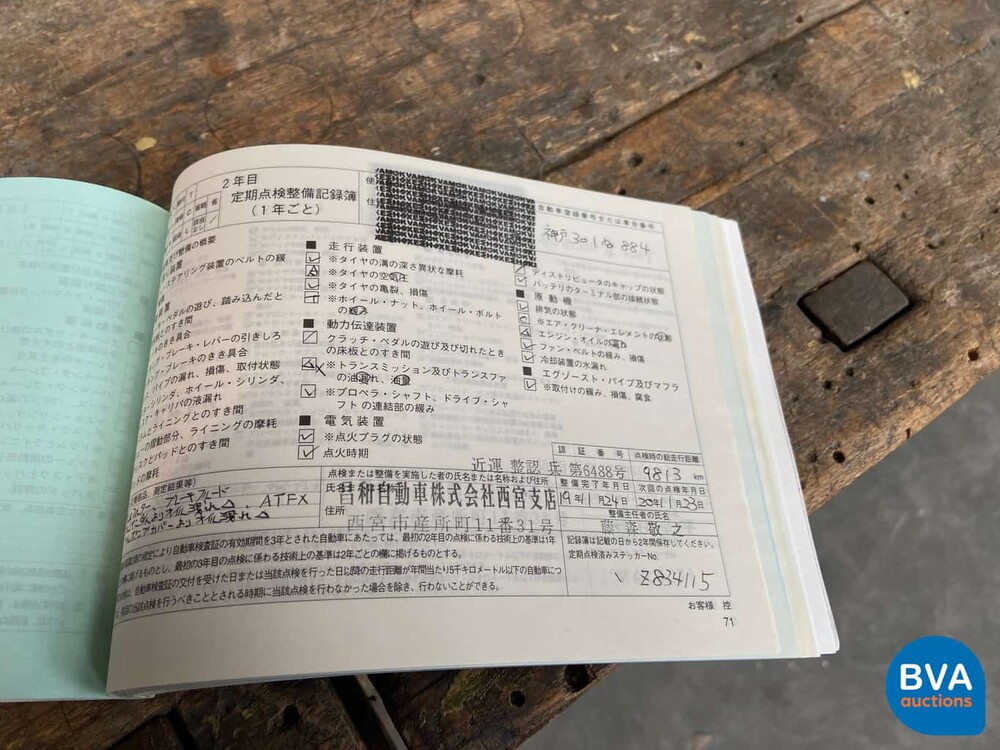 2年目
定期点検整備記録簿
(1年ごと)
自動車登録番号または車台番号
神戸301 884
整備の概要
ステアリング装置のベルトの緩
ペダルの遊び、踏み込んだと
とのすき間
のきき具合
・ブレーキ・レバーの引きしろ
・ブレーキのきき具合
パイプの漏れ、損傷、取付状態
シリンダ、ホイール・シリンダ、
・キャリパの液漏れ
とライニングとのすき間
の摺動部分、ライニングの摩耗
スクとパッドとのすき間
ドの摩耗
■ 走行装置
※タイヤの溝の深さ異状な摩耗
※タイヤの空気圧
※タイヤの亀裂、損傷
※ホイール・ナット、ホイール・ボルト
の緩み
■ 動力伝達装置
クラッチ・ペダルの遊び及び切れたとき
の床板とのすき間
※トランスミッション及びトランスファ
の油漏れ、油量
※プロペラ・シャフト、ドライブ・シャ
フトの連結部の緩み
■ 電気装置
※点火プラグの状態
点火時期
ディストリビュータのキャップの状態
バッテリのターミナル部の接続状態
■ 原動機
排気の状態
※エア・クリーナ・エレメントの状態
エンジン・オイルの漏れ
ファン・ベルトの緩み、損傷
冷却装置の水漏れ
■ エグゾースト・パイプ及びマフラ
※取付けの緩み、損傷、腐食
部品、測定結果等)
ブレーキフルード
ATFX
カバーよりオイル漏れ
点検または整備を実施した者の氏名または名称および住所
近運 整認 兵 第6488号
氏名
昌和自動車株式会社西宮支店
住所
西宮市産所町11番31号
認証番号
点検時の総走行距離
9813 km
整備完了年月日
次回の点検年月日
19年11月24日
20年11月23日
整備主任者の氏名
藤森敬之
記録簿は記載の日から2年間保存してください。
定期点検済みステッカーNo.
Z834115
の規定により自動車検査証の有効期間を3年とされた自動車にあたっては、最初の2年目の点検に係わる技術上の基準は1年
に掲げるものとし、最初の3年目の点検に係わる技術上の基準は2年ごとの欄に掲げるものとする。
は、自動車検査証の交付を受けた日または当該点検を行った日以降の走行距離が年間当たり5千キロメートル以下の自動車につ
回当該点検を行うべきこととされる時期に当該点検を行わなかった場合を除き、行わないことができる。
お客様 控
71
BVA
auctions